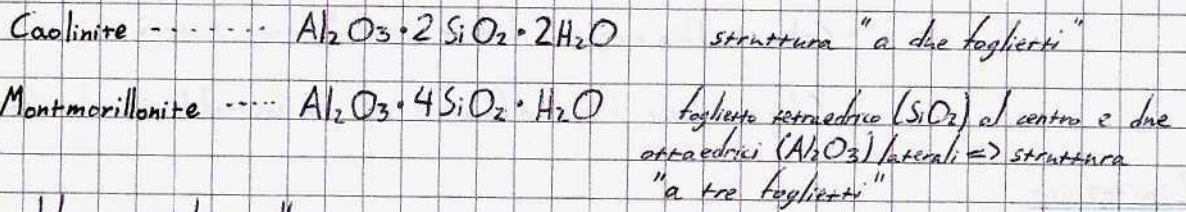 Caolinite -------- Al₂O₃·2SiO₂·2H₂O struttura "a due foglietti"
Montmorillonite ----- Al₂O₃·4SiO₂·H₂O foglietto tetraedrico (SiO₂) al centro e due
ottaedrici (Al₂O₃) laterali => struttura
"a tre foglietti"